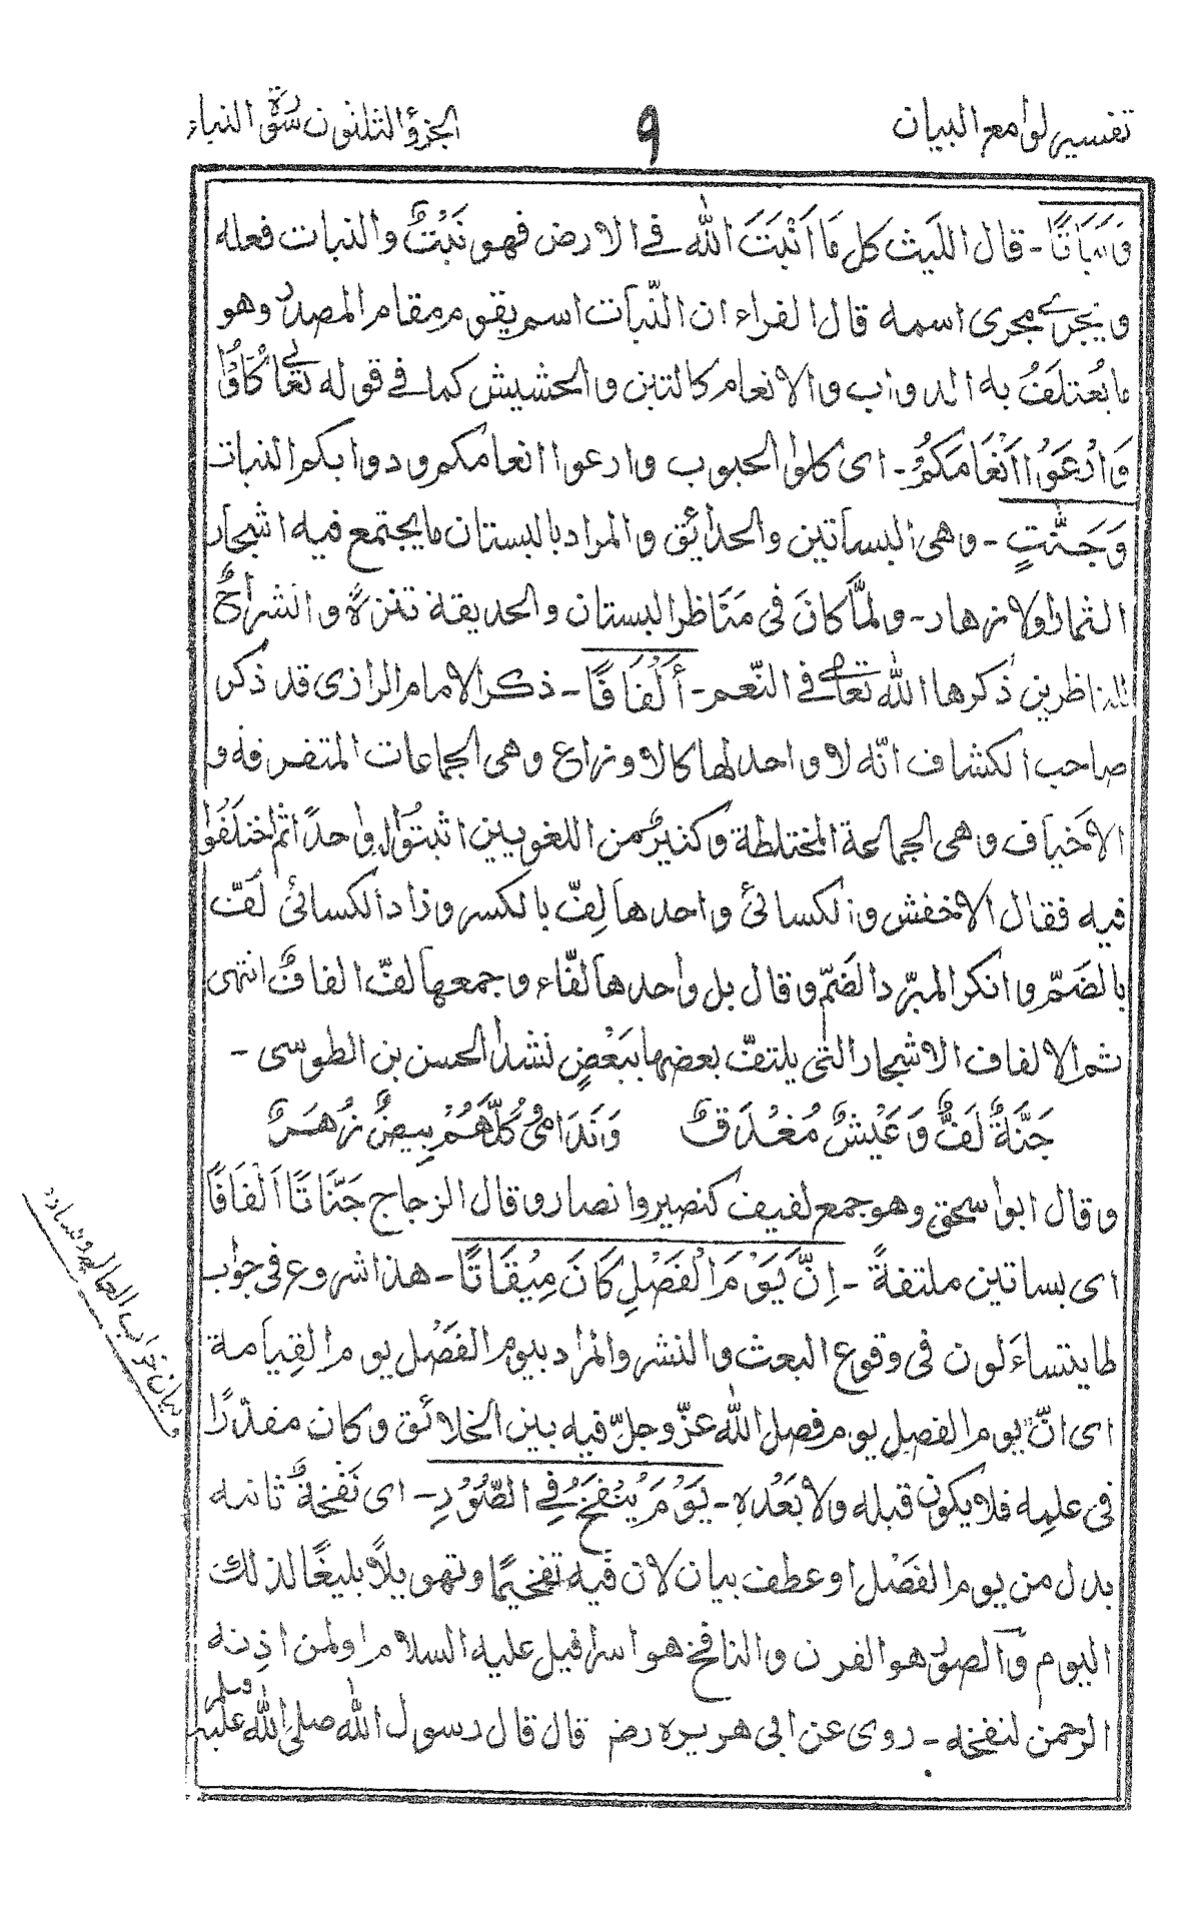 تفسير لوامع البيان
٩
الجزؤ الثلثون سورة النباء
وَنَبَاتًا - قال الليث كل ما اَنْبَتَ الله في الارض فهو نَبْتٌ والنبات فعله
ويجرى مجرى اسمه قال الفراء ان النّبات اسم يقوم مقام المصدر وهو
ما يُعتلَفُ به الدواب والانعام كالتبن والحشيش كما في قوله تعالى كُلُوْا
وَارْعَوْا اَنْعَامَكُمْ - اى كلوا الحبوب وارعوا انعامكم ودوابكم النبات
وَجَنّٰتٍ - وهى البساتين والحدائق والمراد بالبستان ما يجتمع فيه اشجار
الثمار والازهار - ولمَّا كانَ في مَنَاظر البستان والحديقة تنزهٌ وانشراحٌ
للناظرين ذكرها الله تعالى في النّعم - أَلْفَافًا - ذكر الامام الرازى قد ذكر
صاحب الكشاف انّه لا واحد لها كالاوزاع وهى الجماعات المتفرقة و
الاخياف وهى الجماعة المختلطة وكثيرٌ من اللغويين اثبتُوا واحدًا ثم اختلفُوا
فيه فقال الاخفش والكسائىُ واحدها لِفّ بالكسر وزاد الكسائىُ لُفّ
بالضَمّ وانكر المبرّد الضَمّ وقال بل واحدها لفّاء وجمعها لفّ الفافٌ انتهى
ثم الالفاف الاشجار التى يلتفّ بعضها ببَعْضٍ نشد الحسن بن الطوسى -
جَنَّةٌ لَفٌّ وَعَيْشٌ مُغْدَقٌ وَنَدَامٰى كُلُّهُمْ بِيضٌ زُهَرٌ
وقال ابو اسحق وهو جمع لفيف كنصير وانصار وقال الزجاج جَنَّاتًا اَلْفَافًا
اى بساتين ملتفةً - اِنَّ يَوْمَ الْفَصْلِ كَانَ مِيْقَاتًا - هذا شروع فى جواب
ما يتساءَلون فى وقوع البعث والنشر والمراد بيوم الفَصْل يوم القِيامة
اى انّ يوم الفصل يوم فصل الله عزّ وجلّ فيه بين الخلائق وكان مقدّرًا
فى علمه فلا يكون قبله ولا بَعْدهِ - يَوْمَ يُنْفَخُ فِي الصُّوْرِ - اى نَفْخَةٌ ثانيه
بدل من يوم الفَصْل او عطف بيان لان فيه تفخيمًا وتهويلًا بليغًا لذلك
اليوم والصور هو القرن والنافخ هو اسرافيل عليه السلام او لمن اذِنه
الرحمن لنفخه - روى عن ابى هريره رض قال قال رسول الله صلى الله عليه وسلم